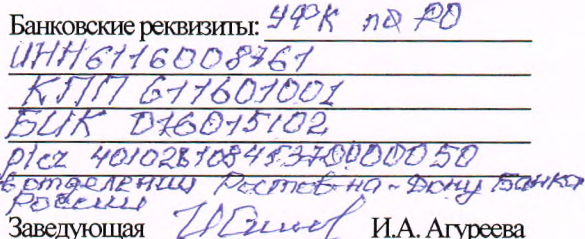 Банковские реквизиты: УФК по РО
ИНН 6116008761
КПП 611601001
БИК 016015102
р/сч 40102810845370000050
в отделении Ростов-на-Дону Банка
России
Заведующая И.А. Агуреева